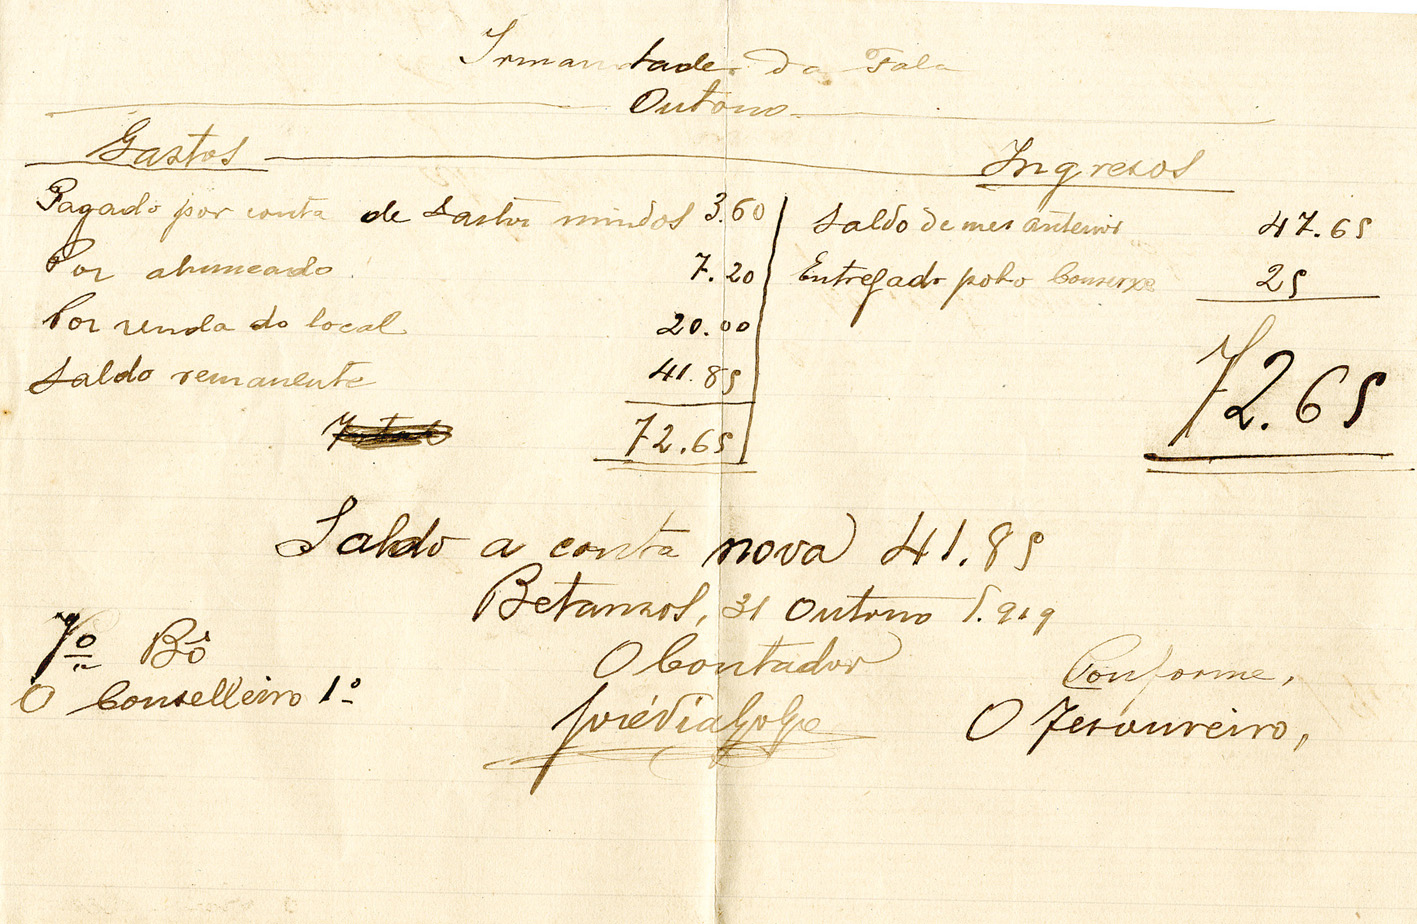 Irmandade da Fala
Outono
Gastos
Ingresos
Pagado por conta de gastos miudos 3.60
Por alumeado 7.20
Por renda do local 20.00
Saldo remanente 41.85
72.65
Saldo de mes anterior 47.65
Entregado polo Conserxe 25
72.65
Saldo a conta nova 41.85
Betanzos, 31 Outono 1.919
Vº Bº
O Conselleiro 1º
O Contador
Conforme,
O Tesoureiro,